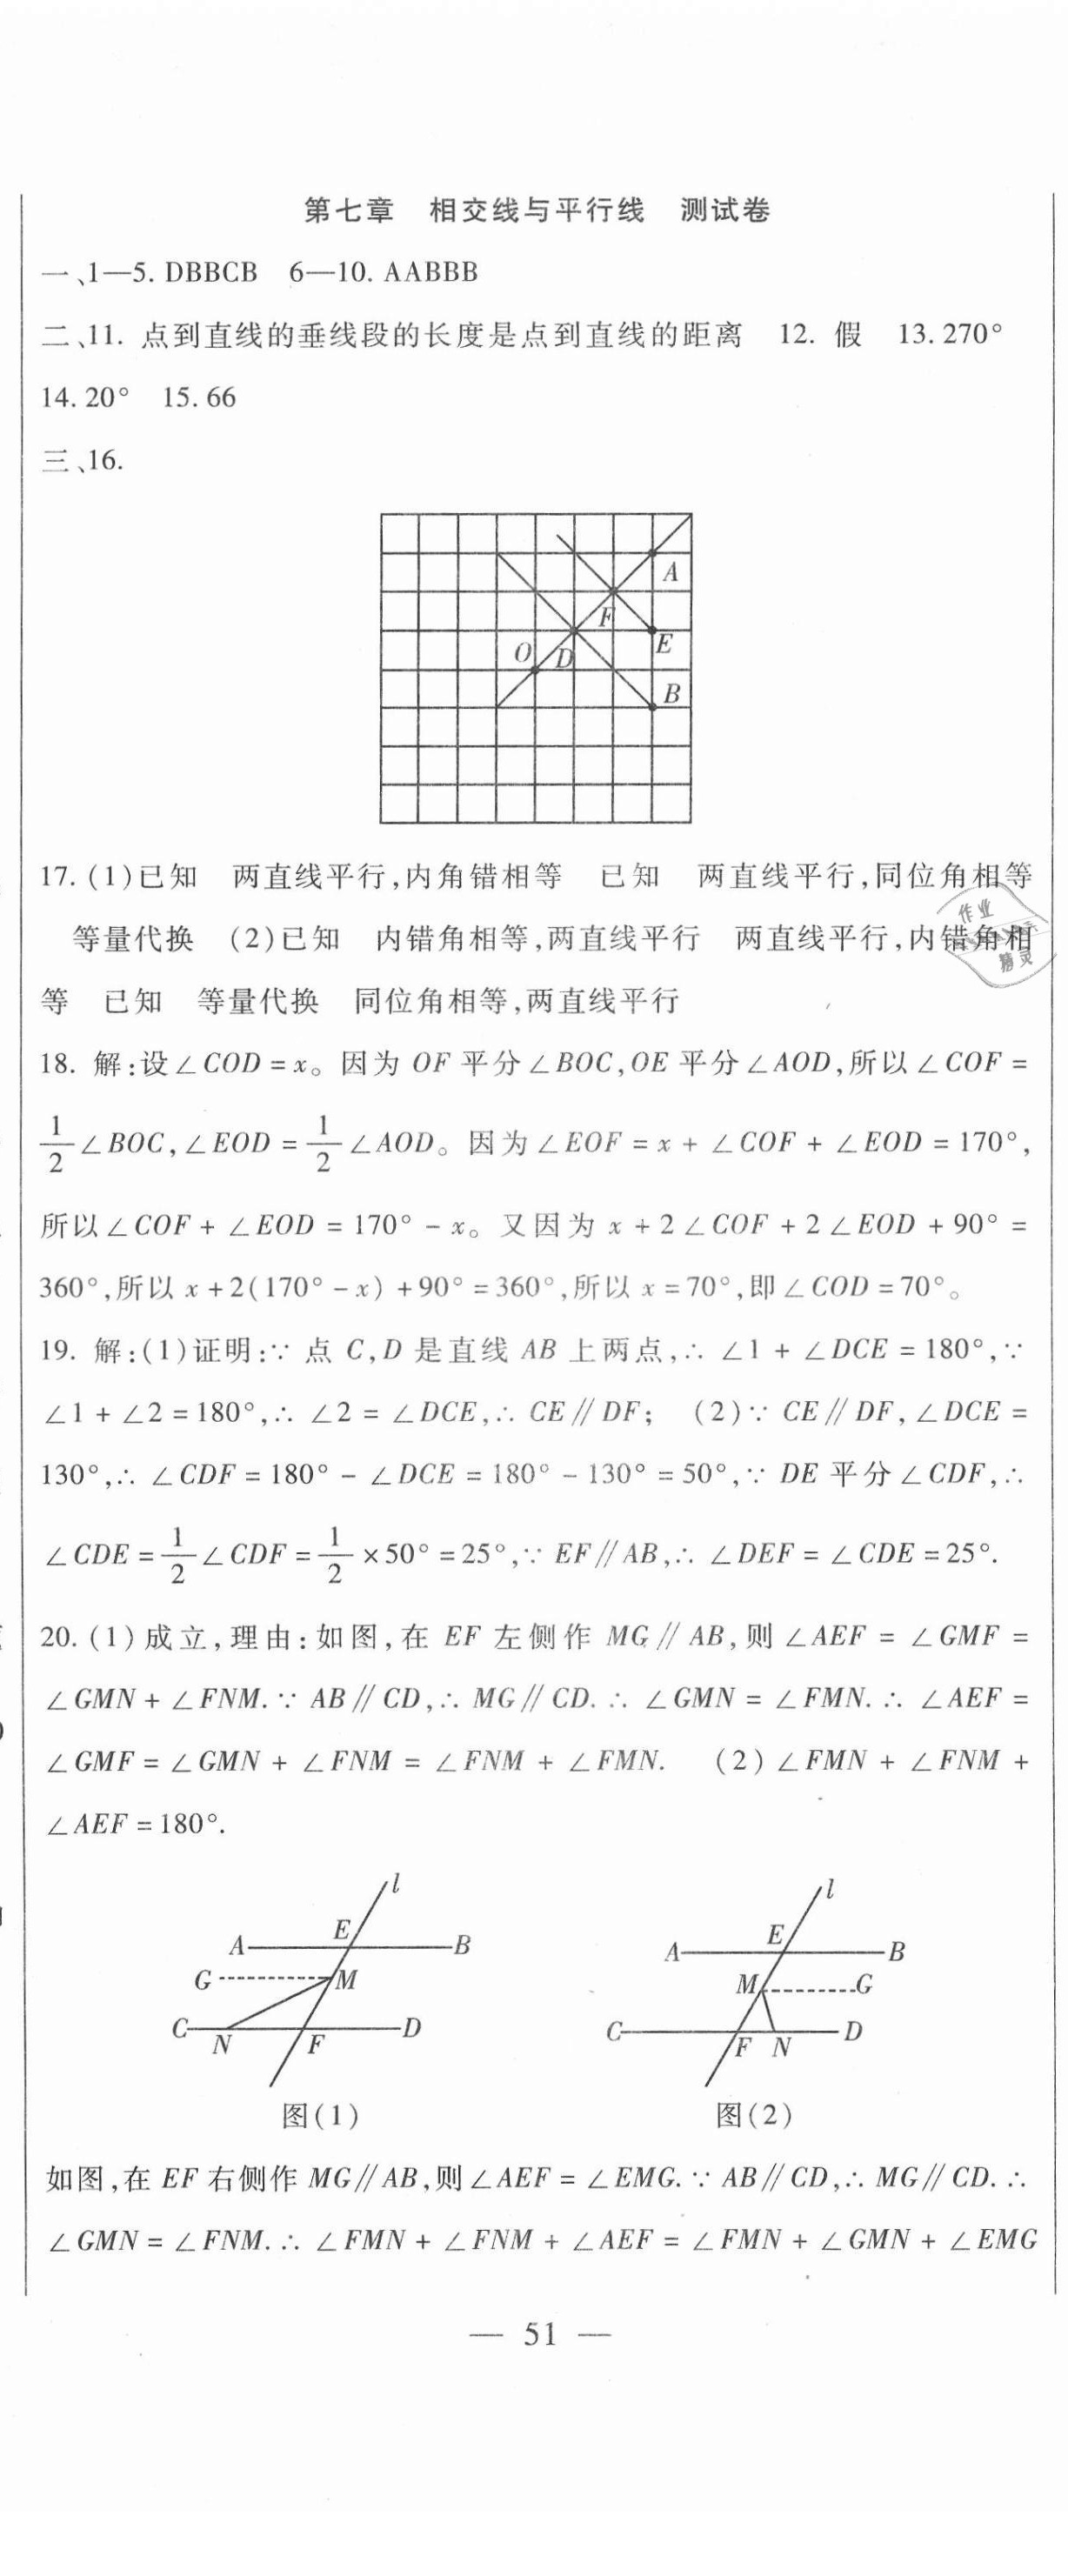 第七章 相交线与平行线 测试卷
一、1—5. DBBCB 6—10. AABBB
二、11. 点到直线的垂线段的长度是点到直线的距离 12. 假 13. 270°
14. 20° 15. 66
三、16.
A
F
E
O D
B
17. (1)已知 两直线平行,内角错相等 已知 两直线平行,同位角相等
等量代换 (2)已知 内错角相等,两直线平行 两直线平行,内错角相
等 已知 等量代换 同位角相等,两直线平行
作业
精灵
18. 解:设∠COD = x。因为 OF 平分∠BOC,OE 平分∠AOD,所以∠COF =
1/2∠BOC,∠EOD = 1/2∠AOD。因为∠EOF = x + ∠COF + ∠EOD = 170°,
所以∠COF + ∠EOD = 170° - x。又因为 x + 2∠COF + 2∠EOD + 90° =
360°,所以 x + 2(170° - x) + 90° = 360°,所以 x = 70°,即∠COD = 70°。
19. 解:(1)证明:∵ 点 C,D 是直线 AB 上两点,∴ ∠1 + ∠DCE = 180°,∵
∠1 + ∠2 = 180°,∴ ∠2 = ∠DCE,∴ CE∥DF; (2)∵ CE∥DF,∠DCE =
130°,∴ ∠CDF = 180° - ∠DCE = 180° - 130° = 50°,∵ DE 平分∠CDF,∴
∠CDE = 1/2∠CDF = 1/2 × 50° = 25°,∵ EF∥AB,∴ ∠DEF = ∠CDE = 25°.
20. (1)成立,理由:如图,在 EF 左侧作 MG∥AB,则∠AEF = ∠GMF =
∠GMN + ∠FNM. ∵ AB∥CD,∴ MG∥CD. ∴ ∠GMN = ∠FMN. ∴ ∠AEF =
∠GMF = ∠GMN + ∠FNM = ∠FNM + ∠FMN. (2)∠FMN + ∠FNM +
∠AEF = 180°.
l
E
A B
G M
C D
N F
图(1)
l
E
A B
M G
C D
F N
图(2)
如图,在 EF 右侧作 MG∥AB,则∠AEF = ∠EMG. ∵ AB∥CD,∴ MG∥CD. ∴
∠GMN = ∠FNM. ∴ ∠FMN + ∠FNM + ∠AEF = ∠FMN + ∠GMN + ∠EMG
— 51 —